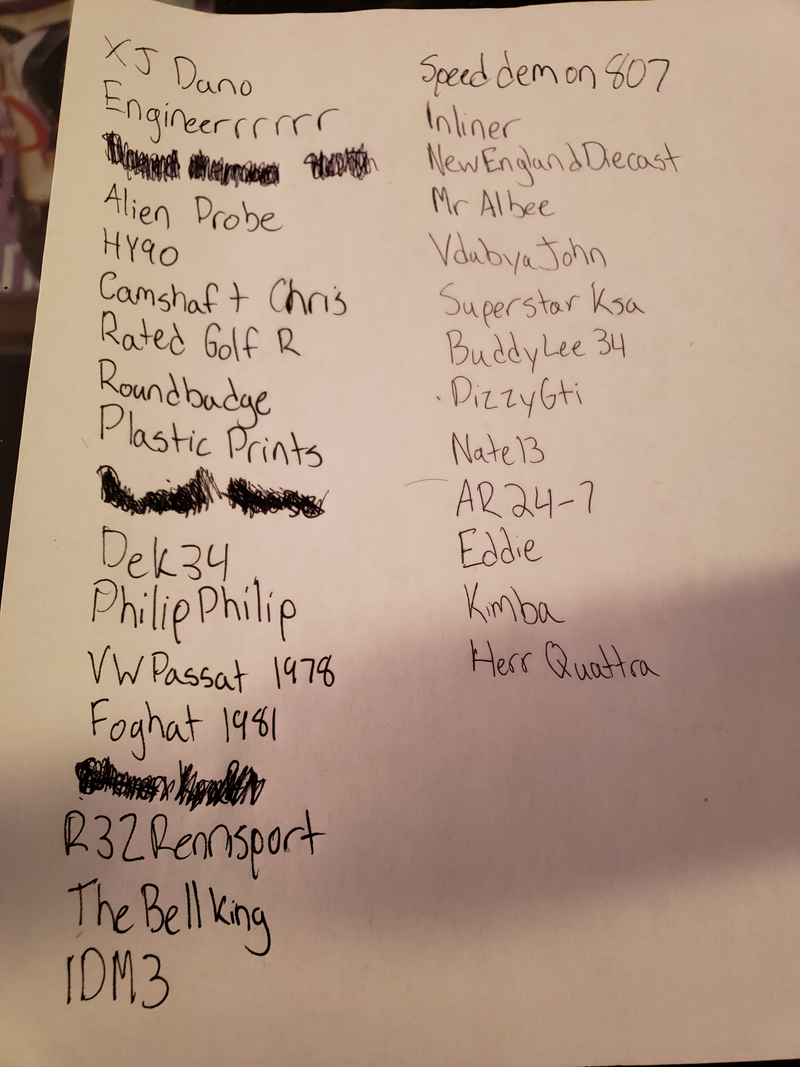 XJ Dano
Engineerrrrrr
Alien Probe
HY90
Camshaft Chris
Rated Golf R
Roundbadge
Plastic Prints
Dek34
PhilipPhilip
VWPassat 1978
Foghat 1981
R32Rennsport
The Bell King
IDM3
Speed demon 807
Inliner
NewEnglandDiecast
Mr Albee
VdubyaJohn
Superstar Ksa
BuddyLee 34
DizzyGti
Nate13
AR24-7
Eddie
Kimba
Herr Quattra